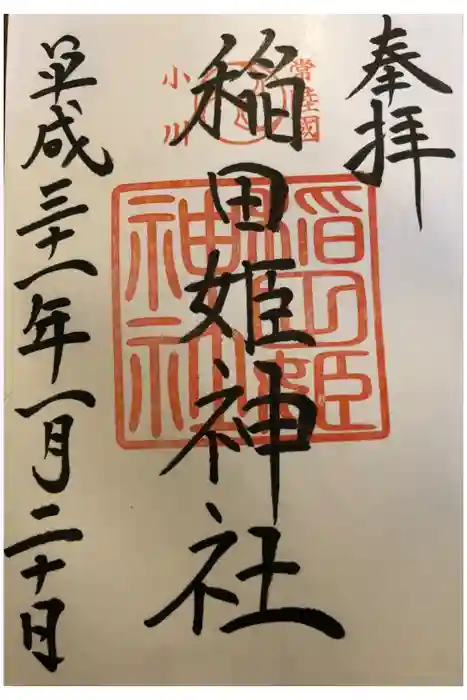 奉拝
常陸國
小川
稲田姫神社
平成三十一年一月二十日